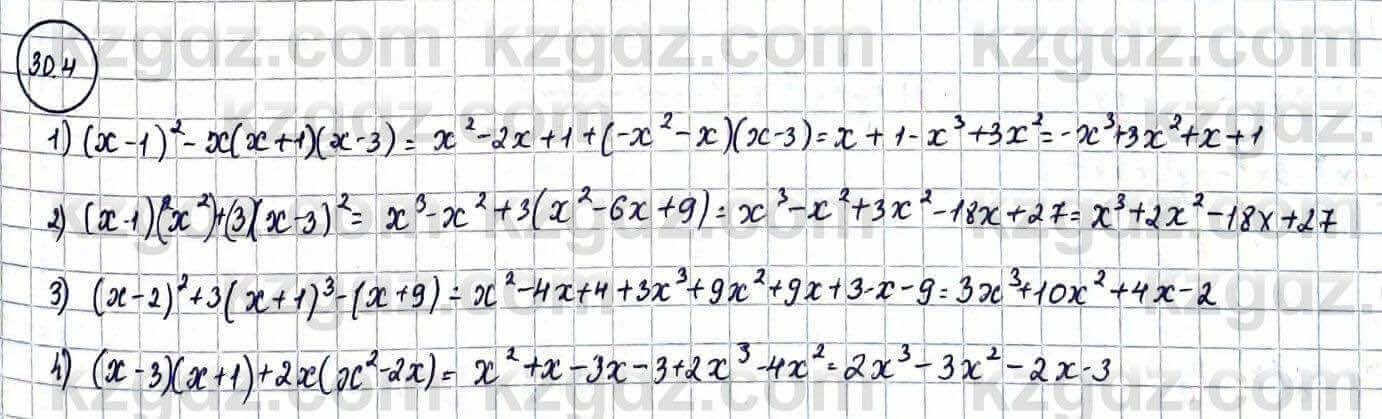 30.4
1) (x-1)²-x(x+1)(x-3)= x²-2x+1+(-x²-x)(x-3)=x+1-x³+3x²=-x³+3x²+x+1
2) (x-1)(x²)+(3)(x-3)²= x³-x²+3(x²-6x+9)=x³-x²+3x²-18x+27=x³+2x²-18x+27
3) (x-2)²+3(x+1)³-(x+9)=x²-4x+4+3x³+9x²+9x+3-x-9=3x³+10x²+4x-2
4) (x-3)(x+1)+2x(x²-2x)= x²+x-3x-3+2x³-4x²=2x³-3x²-2x-3
kzgdz.com